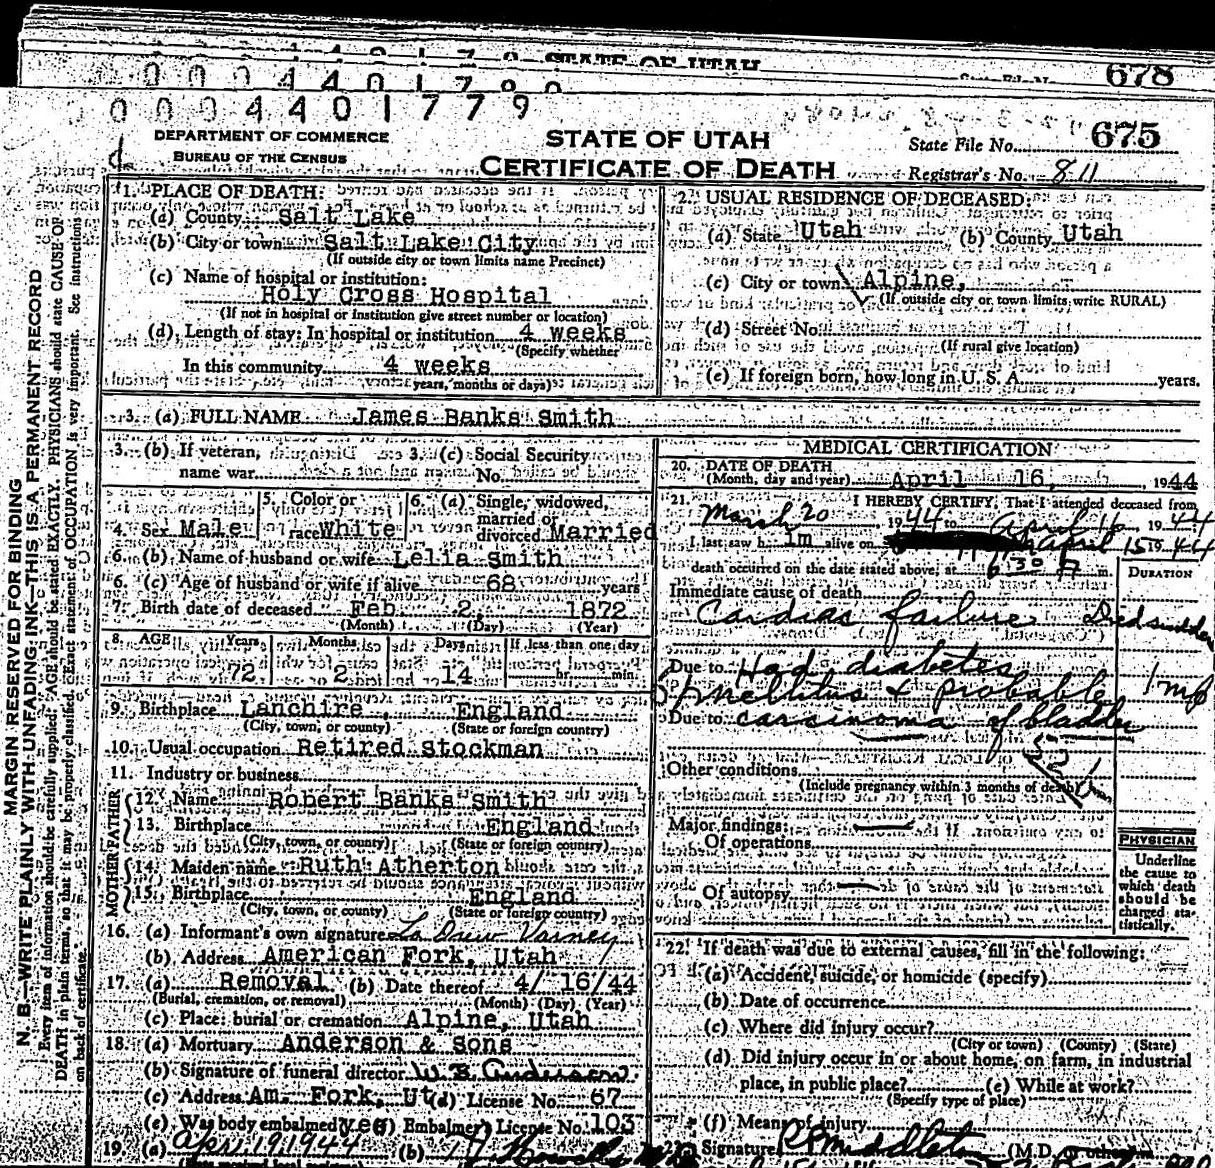 STATE OF UTAH
State File No. 678
0 0 0 4 4 0 1 7 8 0
0 0 0 4 4 0 1 7 7 9
DEPARTMENT OF COMMERCE
BUREAU OF THE CENSUS
STATE OF UTAH
CERTIFICATE OF DEATH
State File No. 675
Registrar's No. 811
MARGIN RESERVED FOR BINDING
N. B.—WRITE PLAINLY WITH UNFADING INK—THIS IS A PERMANENT RECORD
Every item of information should be carefully supplied. AGE should be stated EXACTLY. PHYSICIANS should state CAUSE OF
DEATH in plain terms, so that it may be properly classified. Exact statement of OCCUPATION is very important. See instructions
on back of certificate.
1. PLACE OF DEATH:
(a) County Salt Lake
(b) City or town Salt Lake City
(If outside city or town limits name Precinct)
(c) Name of hospital or institution:
Holy Cross Hospital
(If not in hospital or institution give street number or location)
(d) Length of stay: In hospital or institution 4 weeks
(Specify whether
In this community 4 weeks
years, months or days)
2. USUAL RESIDENCE OF DECEASED:
(a) State Utah (b) County Utah
(c) City or town Alpine,
(If outside city or town limits write RURAL)
(d) Street No.
(If rural give location)
(e) If foreign born, how long in U. S. A. years.
3. (a) FULL NAME James Banks Smith
3. (b) If veteran, name war
3. (c) Social Security No.
4. Sex Male
5. Color or race White
6. (a) Single, widowed, married or divorced Married
6. (b) Name of husband or wife Lelia Smith
6. (c) Age of husband or wife if alive 68 years
7. Birth date of deceased Feb 2 1872
(Month) (Day) (Year)
8. AGE Years Months Days If less than one day
72 2 14 hr. min.
9. Birthplace Lanchire, England
(City, town, or county) (State or foreign country)
10. Usual occupation Retired Stockman
11. Industry or business
FATHER
12. Name Robert Banks Smith
13. Birthplace England
(City, town, or county) (State or foreign country)
MOTHER
14. Maiden name Ruth Atherton
15. Birthplace England
(City, town, or county) (State or foreign country)
16. (a) Informant's own signature La Drew Varney
(b) Address American Fork, Utah
17. (a) Removal (b) Date thereof 4/ 16/44
(Burial, cremation, or removal) (Month) (Day) (Year)
(c) Place: burial or cremation Alpine, Utah
18. (a) Mortuary Anderson & Sons
(b) Signature of funeral director W. B. Anderson
(c) Address Am. Fork, Ut (d) License No. 67
(e) Was body embalmed yes (f) Embalmer's License No. 103
19. (a) Apr. 19 1944 (b)
MEDICAL CERTIFICATION
20. DATE OF DEATH
(Month, day and year) April 16, 1944
21. I HEREBY CERTIFY, That I attended deceased from
March 20 1944 to April 16 1944
I last saw h im alive on April 15 1944
death occurred on the date stated above, at 6 30 A m.
DURATION
Immediate cause of death
Cardiac failure Died suddenly
Due to Had diabetes
mellitus & probable 1 mo
Due to carcinoma of bladder
52
Other conditions
(Include pregnancy within 3 months of death)
Major findings:
Of operations
Of autopsy
PHYSICIAN
Underline
the cause to
which death
should be
charged sta-
tistically.
22. If death was due to external causes, fill in the following:
(a) Accident, suicide, or homicide (specify)
(b) Date of occurrence
(c) Where did injury occur?
(City or town) (County) (State)
(d) Did injury occur in or about home, on farm, in industrial
place, in public place? (e) While at work?
(Specify type of place)
(f) Means of injury
Signature R P Middleton (M.D. or other)